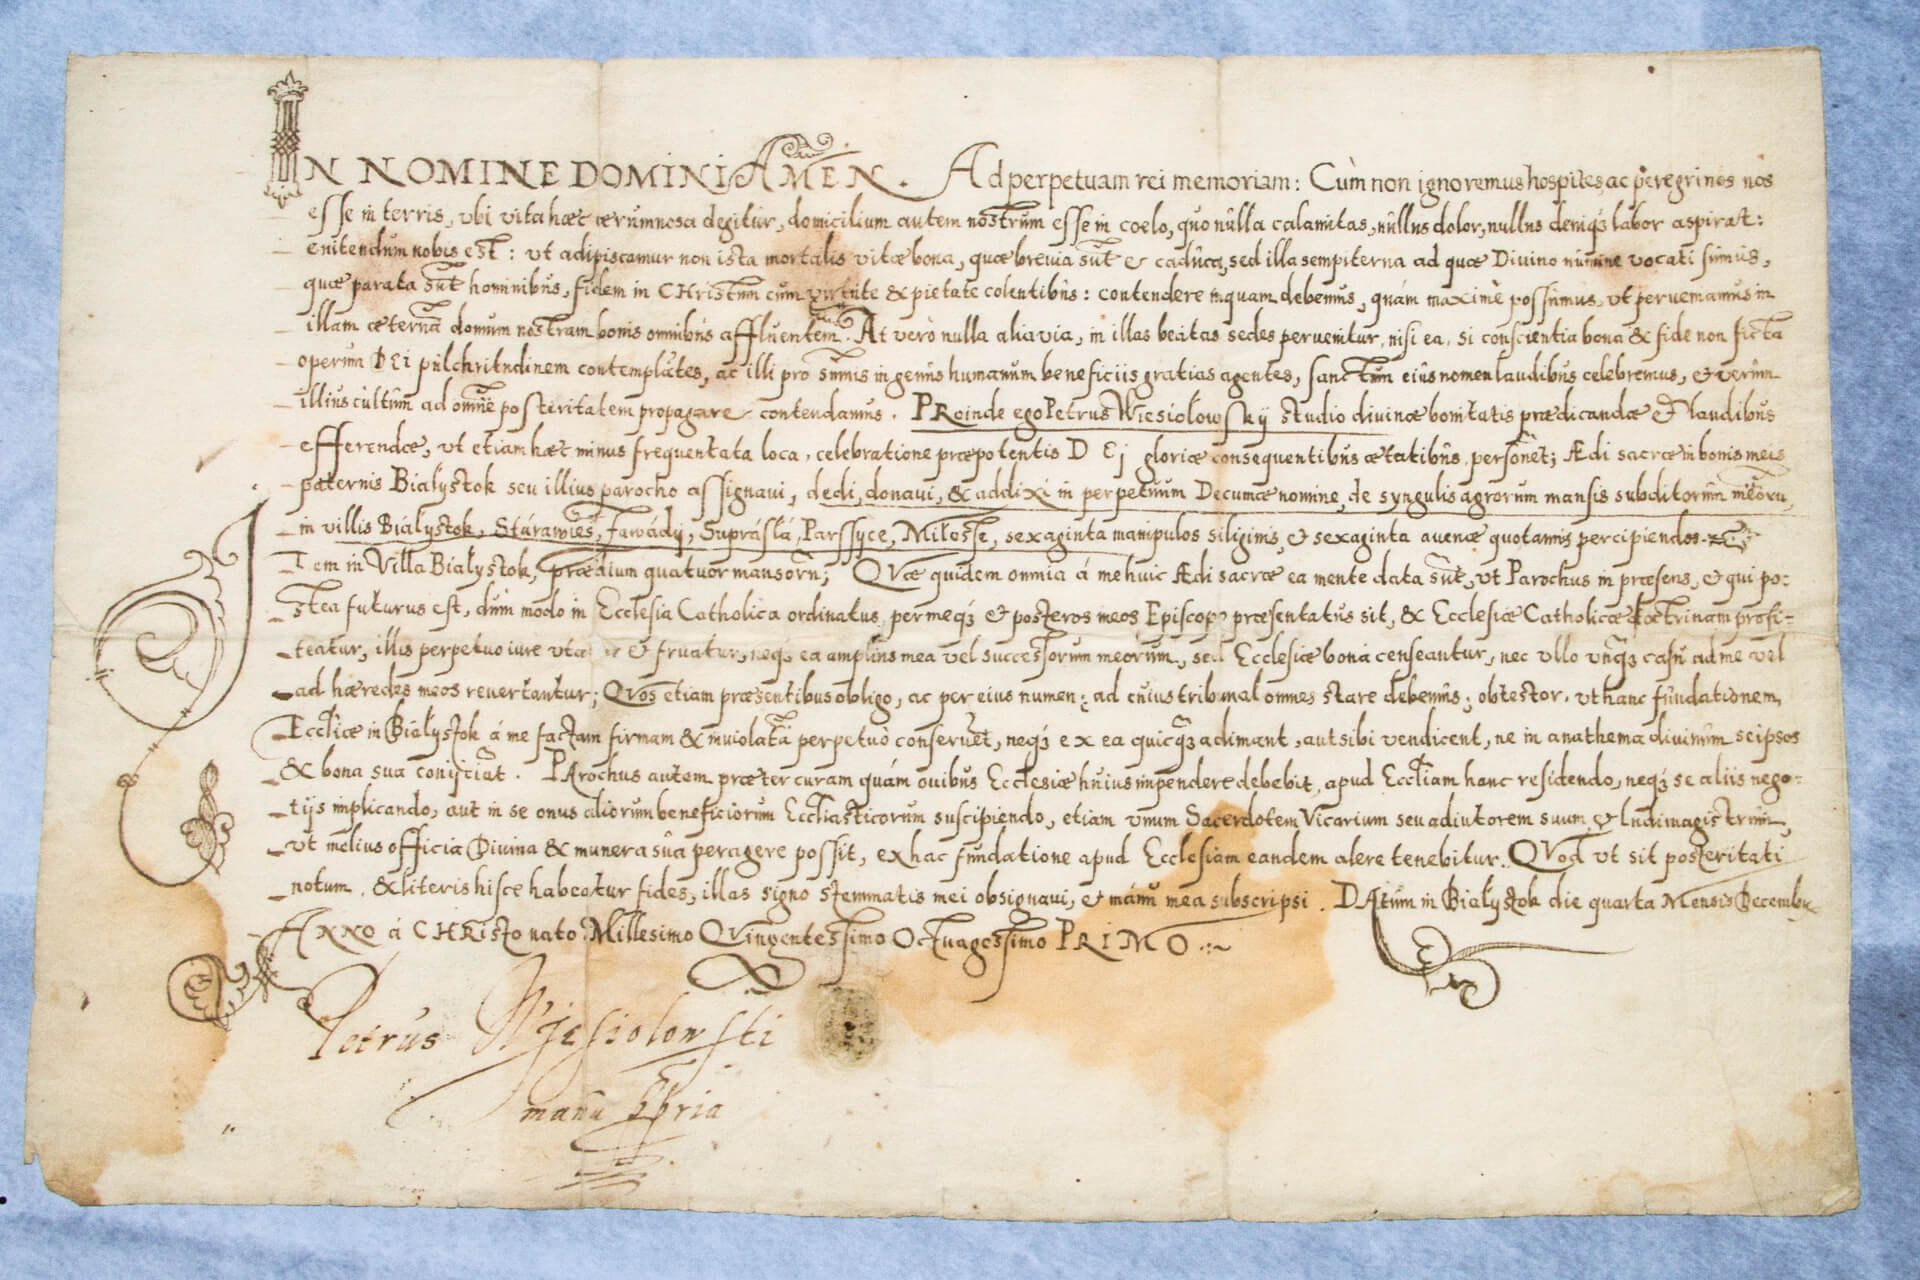 IN NOMINE DOMINI AMEN. Ad perpetuam rei memoriam: Cùm non ignoremus hospites ac peregrinos nos
esse in terris, vbi vita hæc ærumnosa degitur, domicilium autem nostrum esse in coelo, quo nulla calamitas, nullus dolor, nullus deniqꝫ labor aspirat:
enitendum nobis est: vt adipiscamur non ista mortalis vitæ bona, quæ brevia sūt & caduca, sed illa sempiterna ad quæ Divino numine vocati sumus,
quæ parata sūt hominibus, fidem in CHristum cum virtute & pietate colentibus: contendere inquam debemus, quám maximè possumus, vt perueniamus in
illam æternā domum nostram bonis omnibus affluentem. At verò nulla alia via, in illas beatas sedes peruenitur, nisi ea, si conscientia bona & fide non ficta
operum DEi pulchritudinem contemplātes, ac illi pro sūmis in genus humanum beneficiis gratias agentes, sanctum eius nomen laudibus celebremus, & verum
illius cultum ad omnē posteritatem propagare contendamus. PRoinde ego Petrus Wiesiolowsky studio divinæ bonitatis prædicandæ & laudibus
efferendæ, vt etiam hæc minus frequentata loca, celebratione præpotentis DEj gloriæ consequentibus ætatibus, personēt; Ædi sacræ in bonis meis
paternis Bialystok seu illius parocho assignaui, dedi, donaui, & addixi in perpetuum Decumæ nomine, de syngulis agrorum mansis subditorum meorū,
in villis Bialystok, Stárawies, Zawády, Suprásla, Parssyce, Milosse, sexaginta manipulos siliginis, & sexaginta auenæ quotannis percipiendos.
Item in Villa Bialystok, prædium quatuor mansorū; QVæ quidem omnia á me huic Ædi sacræ ea mente data sūt, vt Parochus in præsens, & qui po-
stea futurus est, dum modo in Ecclesia Catholica ordinatus, per meqꝫ & posteros meos Episcopo præsentatus sit, & Ecclesiæ Catholicæ doctrinam profi-
teatur, illis perpetuo iure & fruatur, neqꝫ ea amplius mea vel successorum meorum, sed Ecclesiæ bona censeantur, nec vllo vnqꝫ casu ad me vel
ad hæredes meos reuertantur; QVos etiam præsentibus obligo, ac per eius numen; ad cuius tribunal omnes stare debemus; obtestor, vt hanc fundationem
Eccliæ in Bialystok á me factam firmam & inuiolatā perpetuò conseruēt, neqꝫ ex ea quicqꝫ adimant, aut sibi vendicent, ne in anathema divinum seipsos
& bona sua conijciāt. PArochus autem præter curam quám ouibus Ecclesiæ huius inpendere debebit, apud Eccliam hanc residendo, neqꝫ se aliis nego-
tijs implicando, aut in se onus aliorum beneficiorum Eccliasticorum suscipiendo, etiam vnum Sacerdotem Vicarium seu adiutorem suum, & ludimagistrum,
vt melius officia Divina & munera sua peragere possit, ex hac fundatione apud Ecclesiam eandem alere tenebitur. QVod vt sit posteritati
notum, & literis hisce habeatur fides, illas signo stemmatis mei obsignaui, & manu mea subscripsi. DAtum in Bialystok die quarta Mensis Decembr
ANNO á CHRisto nato Millesimo QVingentessimo Octuagessimo PRIMO
Petrus Wiesiolowski
manu ppria